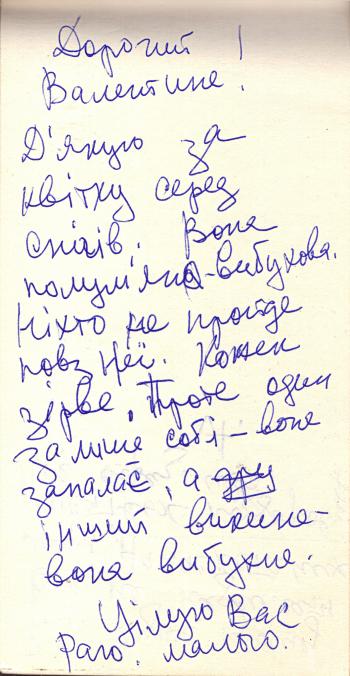 Дорогий !
Валентине !
Д'якую за
квітку серед
снігів. Вона
полум'яно-вибухова.
Ніхто не пройде
повз неї. Кожен
зірве. Проте один
залише собі – вона
запалає, а
інший викине –
вона вибухне.
Цілую Вас
малого.